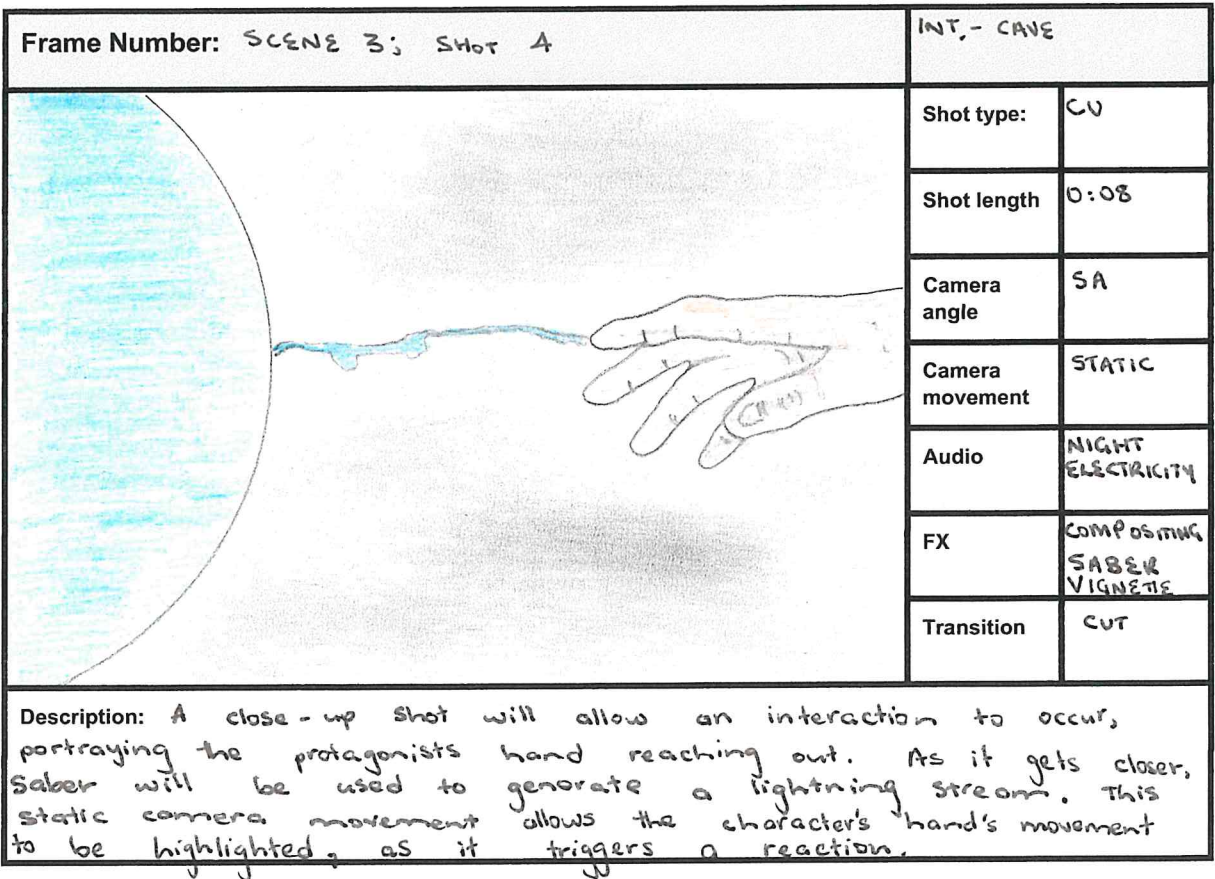 Frame Number: SCENE 3; SHOT 4
INT.- CAVE
Shot type: CU
Shot length 0:08
Camera angle SA
Camera movement STATIC
Audio NIGHT
ELECTRICITY
FX COMPOSITING
SABER
VIGNETTE
Transition CUT
Description: A close-up shot will allow an interaction to occur,
portraying the protagonists hand reaching out. As it gets closer,
Saber will be used to genorate a lightning stream. This
static camera movement allows the character's hand's movement
to be highlighted, as it triggers a reaction.